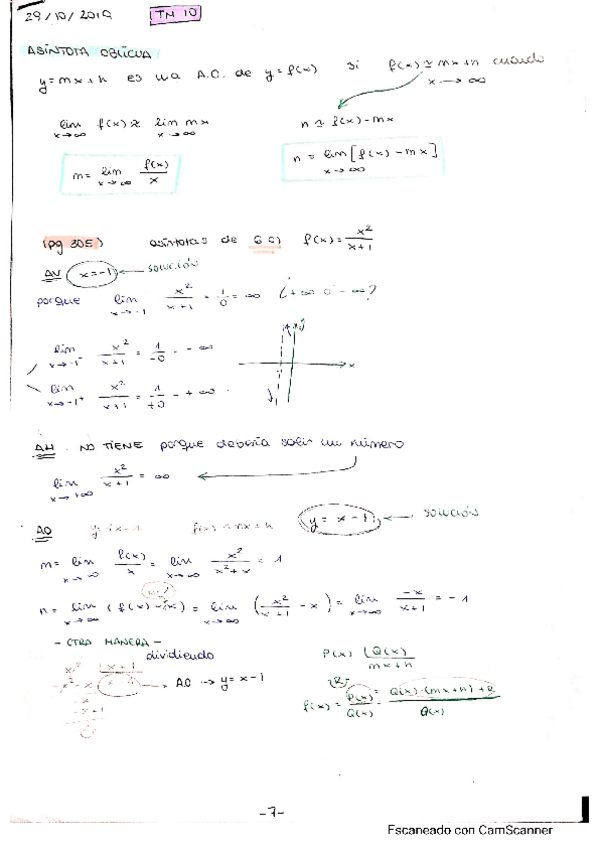 29/10/2019 TM 10
ASÍNTOTA OBLICUA
y=mx+n es una A.O. de y=f(x) si f(x) ≃ mx+n cuando
x → ∞
lim x→∞ f(x) ≃ lim x→∞ mx n ≃ f(x)-mx
m= lim x→∞ f(x)/x n = lim x→∞ [f(x)-mx]
(pg 305) asíntotas de 6 c) f(x)= x²/x+1
AV x=-1 ← SOLUCIÓN
porque lim x→-1 x²/x+1 = 1/0 = ∞ ¿+∞ o -∞?
lim x→-1⁻ x²/x+1 = 1/-0 = -∞
lim x→-1⁺ x²/x+1 = 1/+0 = +∞
y
x
-1
AH NO TIENE porque debería salir un número
lim x→±∞ x²/x+1 = ∞
AO f(x) = mx+n y = x-1 ← SOLUCIÓN
m= lim x→∞ f(x)/x = lim x→∞ x²/x²+x = 1
n= lim x→∞ (f(x)-x) = lim x→∞ (x²/x+1 - x) = lim x→∞ -x/x+1 = -1
- OTRA MANERA -
dividiendo P(x) |Q(x)
x² |x+1 mx+n
-x²-x x-1 → AO → y=x-1
-x
f(x) = P(x)/Q(x) = Q(x)·(mx+n)+R/Q(x)
-7-
Escaneado con CamScanner